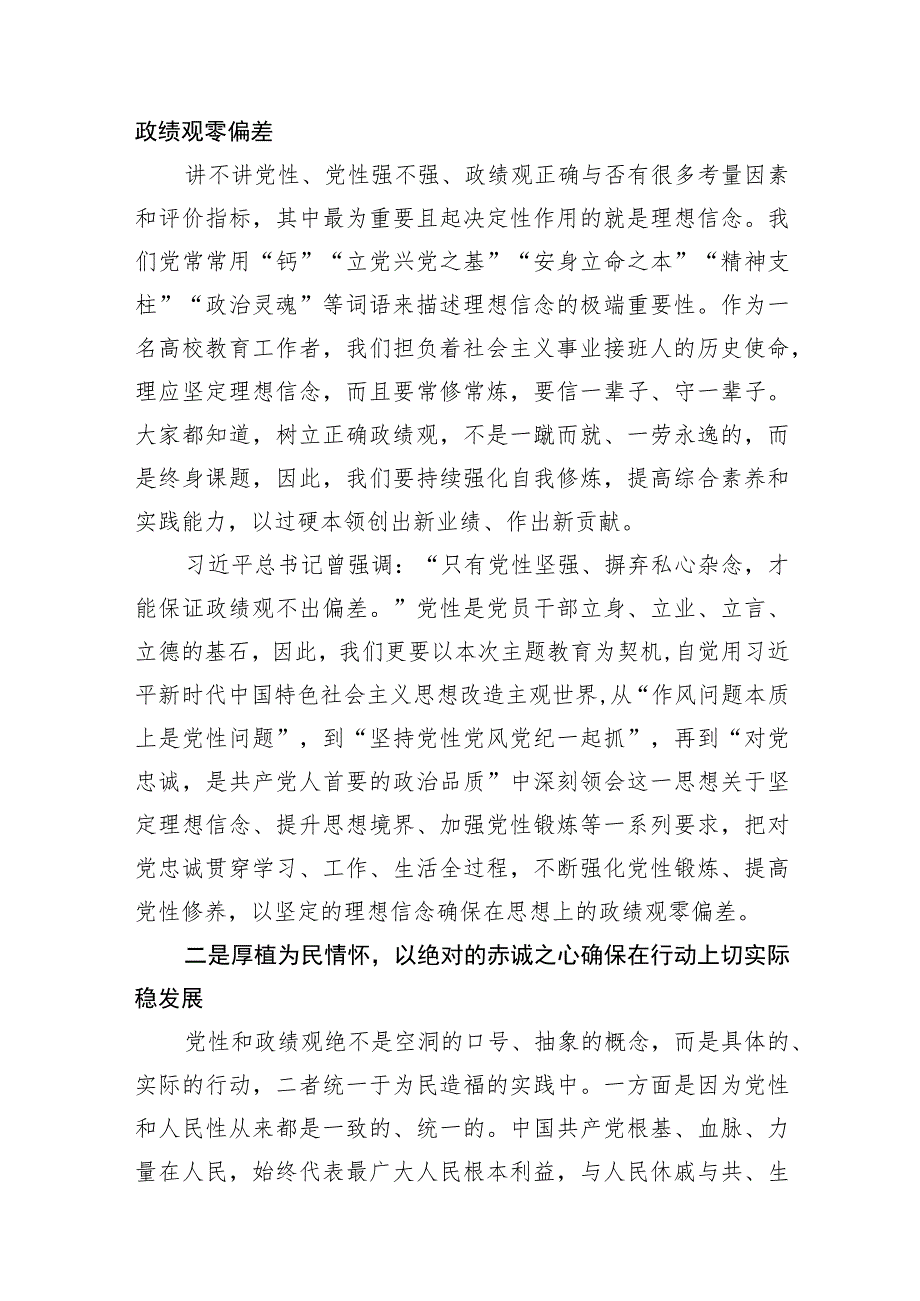 政绩观零偏差
讲不讲党性、党性强不强、政绩观正确与否有很多考量因素
和评价指标，其中最为重要且起决定性作用的就是理想信念。我
们党常常用“钙”“立党兴党之基”“安身立命之本”“精神支
柱”“政治灵魂”等词语来描述理想信念的极端重要性。作为一
名高校教育工作者，我们担负着社会主义事业接班人的历史使命，
理应坚定理想信念，而且要常修常炼，要信一辈子、守一辈子。
大家都知道，树立正确政绩观，不是一蹴而就、一劳永逸的，而
是终身课题，因此，我们要持续强化自我修炼，提高综合素养和
实践能力，以过硬本领创出新业绩、作出新贡献。
习近平总书记曾强调：“只有党性坚强、摒弃私心杂念，才
能保证政绩观不出偏差。”党性是党员干部立身、立业、立言、
立德的基石，因此，我们更要以本次主题教育为契机,自觉用习近
平新时代中国特色社会主义思想改造主观世界,从“作风问题本质
上是党性问题”，到“坚持党性党风党纪一起抓”，再到“对党
忠诚，是共产党人首要的政治品质”中深刻领会这一思想关于坚
定理想信念、提升思想境界、加强党性锻炼等一系列要求，把对
党忠诚贯穿学习、工作、生活全过程，不断强化党性锻炼、提高
党性修养，以坚定的理想信念确保在思想上的政绩观零偏差。
二是厚植为民情怀，以绝对的赤诚之心确保在行动上切实际
稳发展
党性和政绩观绝不是空洞的口号、抽象的概念，而是具体的、
实际的行动，二者统一于为民造福的实践中。一方面是因为党性
和人民性从来都是一致的、统一的。中国共产党根基、血脉、力
量在人民，始终代表最广大人民根本利益，与人民休戚与共、生